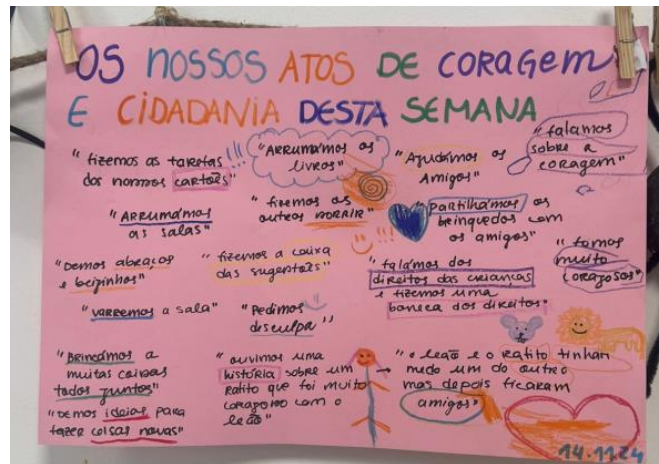 OS NOSSOS ATOS DE CORAGEM
E CIDADANIA DESTA SEMANA
"fizemos as tarefas
dos nossos cartões"
"ARRUMÁMOS os
livros"
"Ajudámos os
Amigos"
"falamos
sobre a
coragem"
"ARRUMÁMOS
as salas"
"fizemos os
outros sorrir"
partilhámos os
brinquedos com
os amigos"
"Demos abraços
e beijinhos"
"fizemos a caixa
das sugestões"
"falámos dos
direitos das crianças
e fizemos uma
boneca dos direitos"
"fomos
muito
corajosos"
"varremos a sala"
"Pedimos
desculpa"
"Brincámos a
muitas coisas
todos juntos"
"ouvimos uma
história sobre um
Ratito que foi muito
corajoso com o
leão"
"o leão e o Ratito tinham
medo um do outro
mas depois ficaram
amigos"
"Demos ideias para
fazer coisas novas"
14.11.24